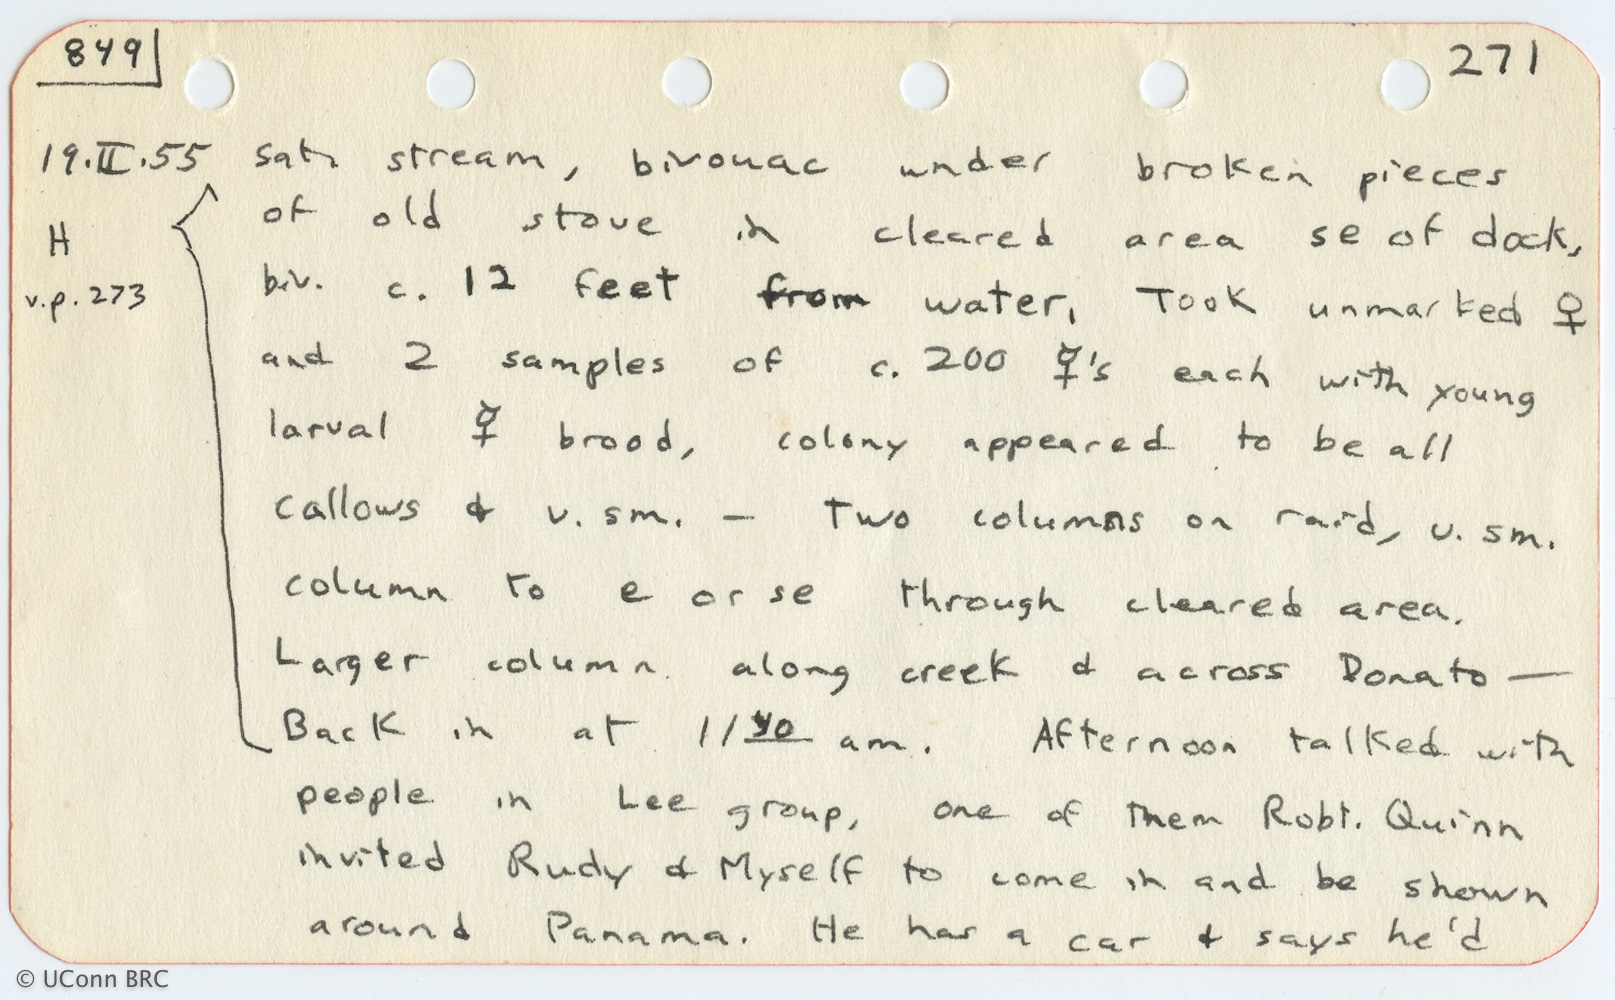 849
271
19.II.55 stream, bivouac under broken pieces
of old stove in cleared area se of dock,
H
biv. c. 12 feet from water, Took unmarked ♀
v.p. 273
and 2 samples of c. 200 ☿'s each with young
larval ☿ brood, colony appeared to be all
callows & v. sm. — Two columns on raid, v. sm.
column to e or se through cleared area.
Larger column along creek & across Donato —
Back in at 11 40 am. Afternoon talked with
people in Lee group, one of them Robt. Quinn
invited Rudy & Myself to come in and be shown
around Panama. He has a car & says he'd
© UConn BRC